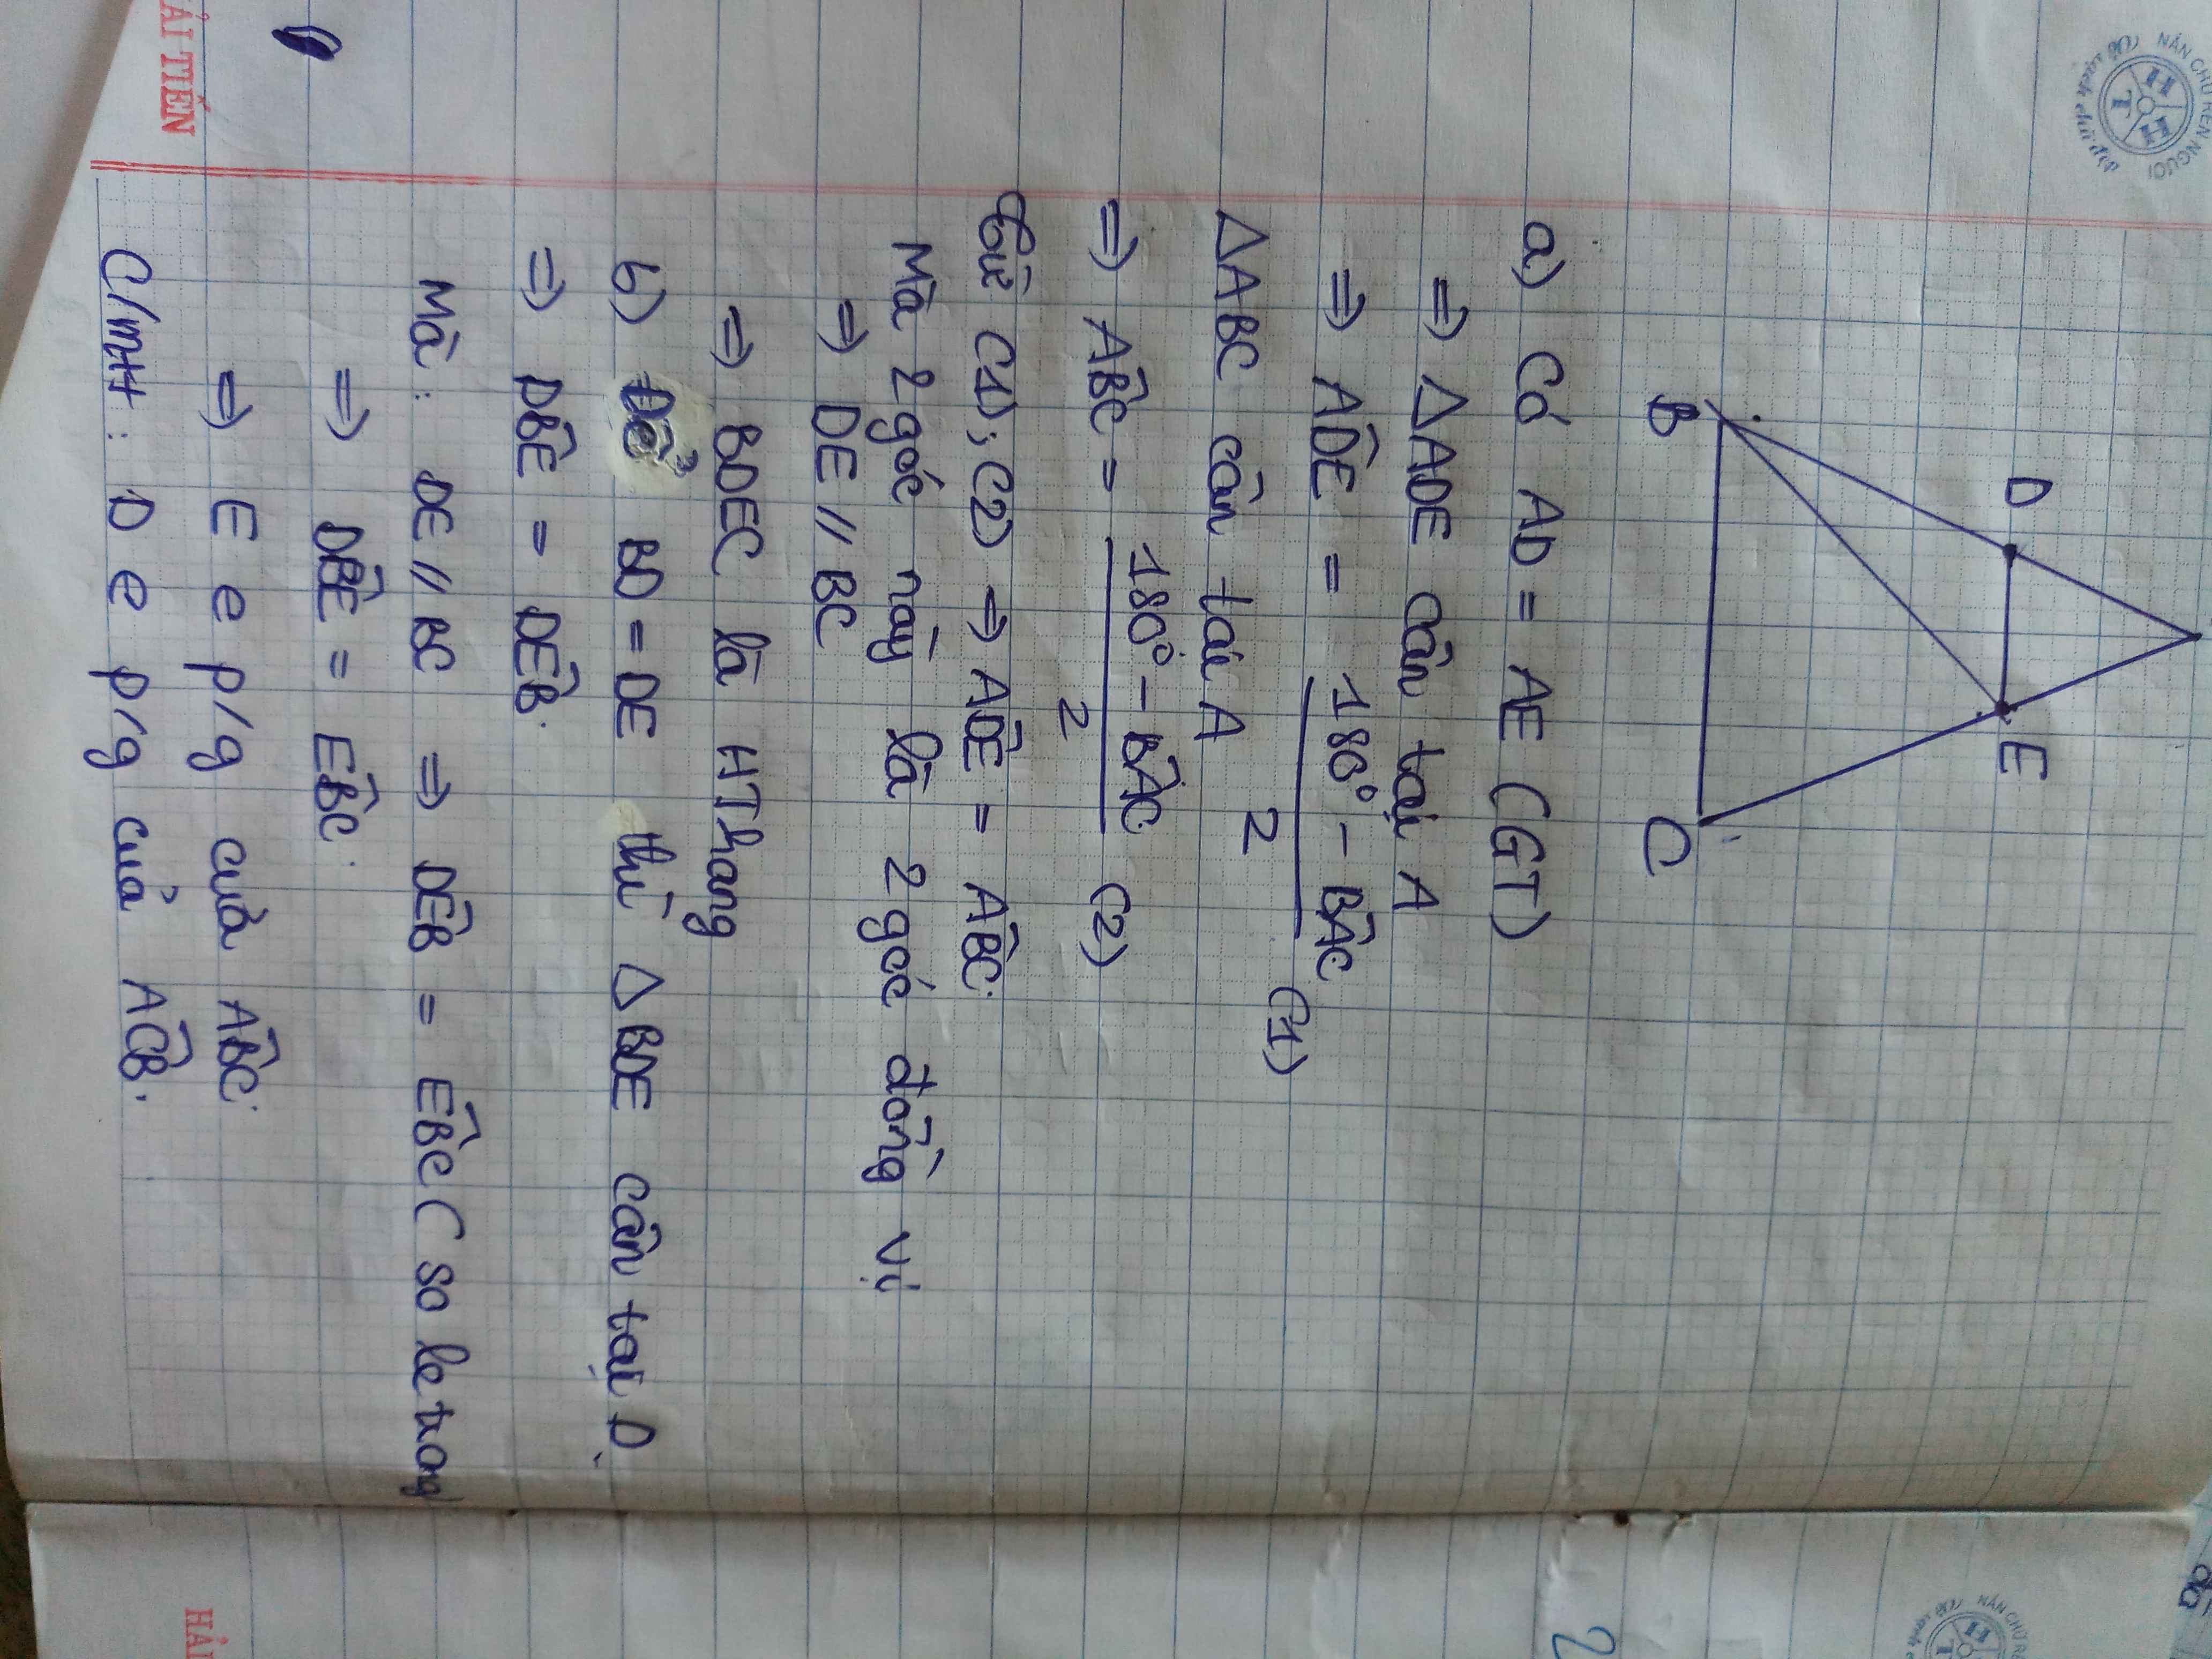 D
E
B
C
a) Có AD = AE (GT)
=> △ADE cân tại A
=> ADÊ = 180° - BÂC / 2 (1)
△ABC cân tại A
=> AB̂C = 180° - BÂC / 2 (2)
Từ (1); (2) => AD̂E = AB̂C.
Mà 2 góc này là 2 góc đồng vị
=> DE // BC
=> BDEC là HThang
b) Để BD = DE thì △BDE cân tại D.
=> DB̂E = DÊB.
Mà: DE // BC => DÊB = EB̂C (so le trong)
=> DB̂E = EB̂C.
=> E e p/g của AB̂C.
C/mtt: D e p/g của AĈB.
HẢI TIẾN
NẮN CHỮ RÈN NGƯỜI
HTHH
HẢI
NẮN CHỮ
2